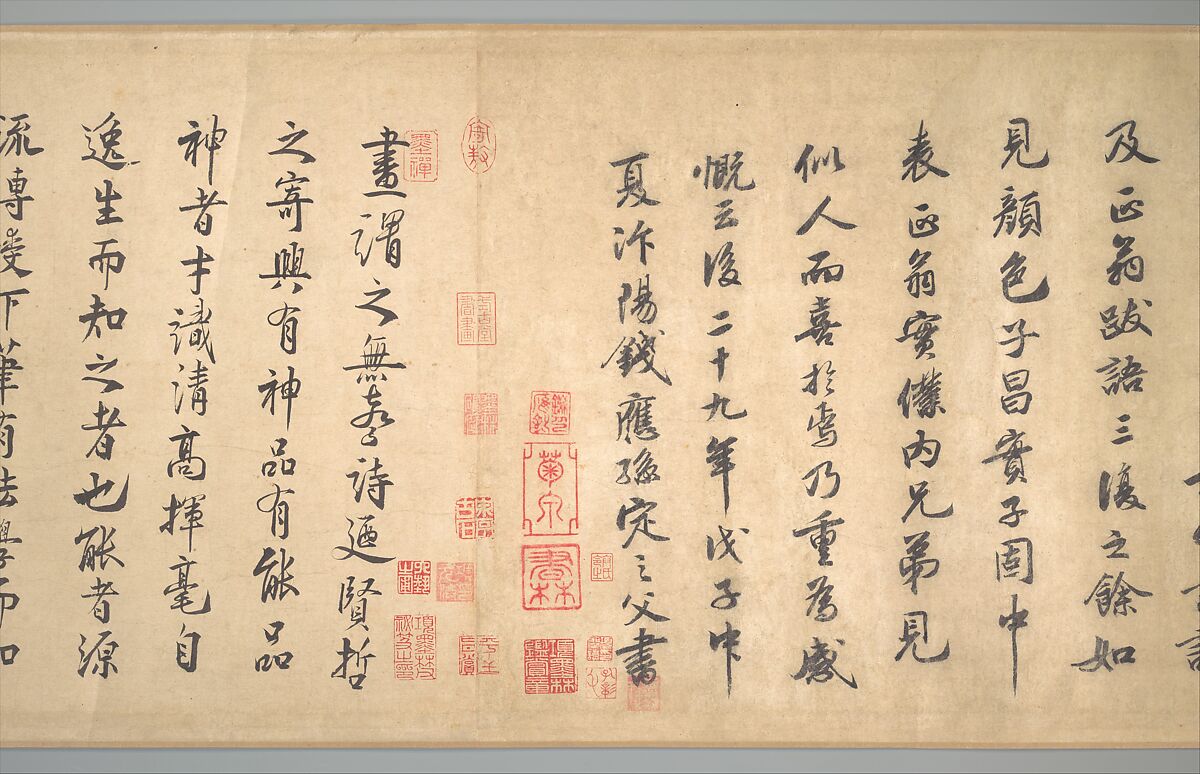 及正翁跋語三復之餘如
見顏色子昌實子固中
表正翁實僕內兄弟見
似人而喜於焉乃重為感
慨云後二十九年戊子中
夏汴陽錢應孫定之父書
畫謂之無聲詩迺賢哲
之寄興有神品有能品
神者才識清高揮毫自
逸生而知之者也能者源
流傳受下筆有法學而知
墨禪
項墨林鑑賞章
平生真賞